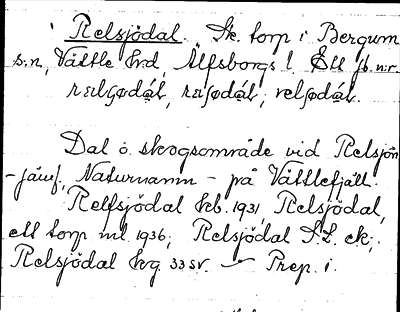 Relsjödal. Sk. torp i Bergum
s:n, Vättle hrd, Älfsborgs l. Ett jb.n:r.
Dal o. skogsområde vid Relsjön
-jämf. Naturnamn - på Vättlefjäll.
Relfsjödal kb. 1931, Relsjödal,
ett torp ml 1936; Relsjödal S.L. ek.;
Relsjödal krg. 33 sv. — Prep. i.